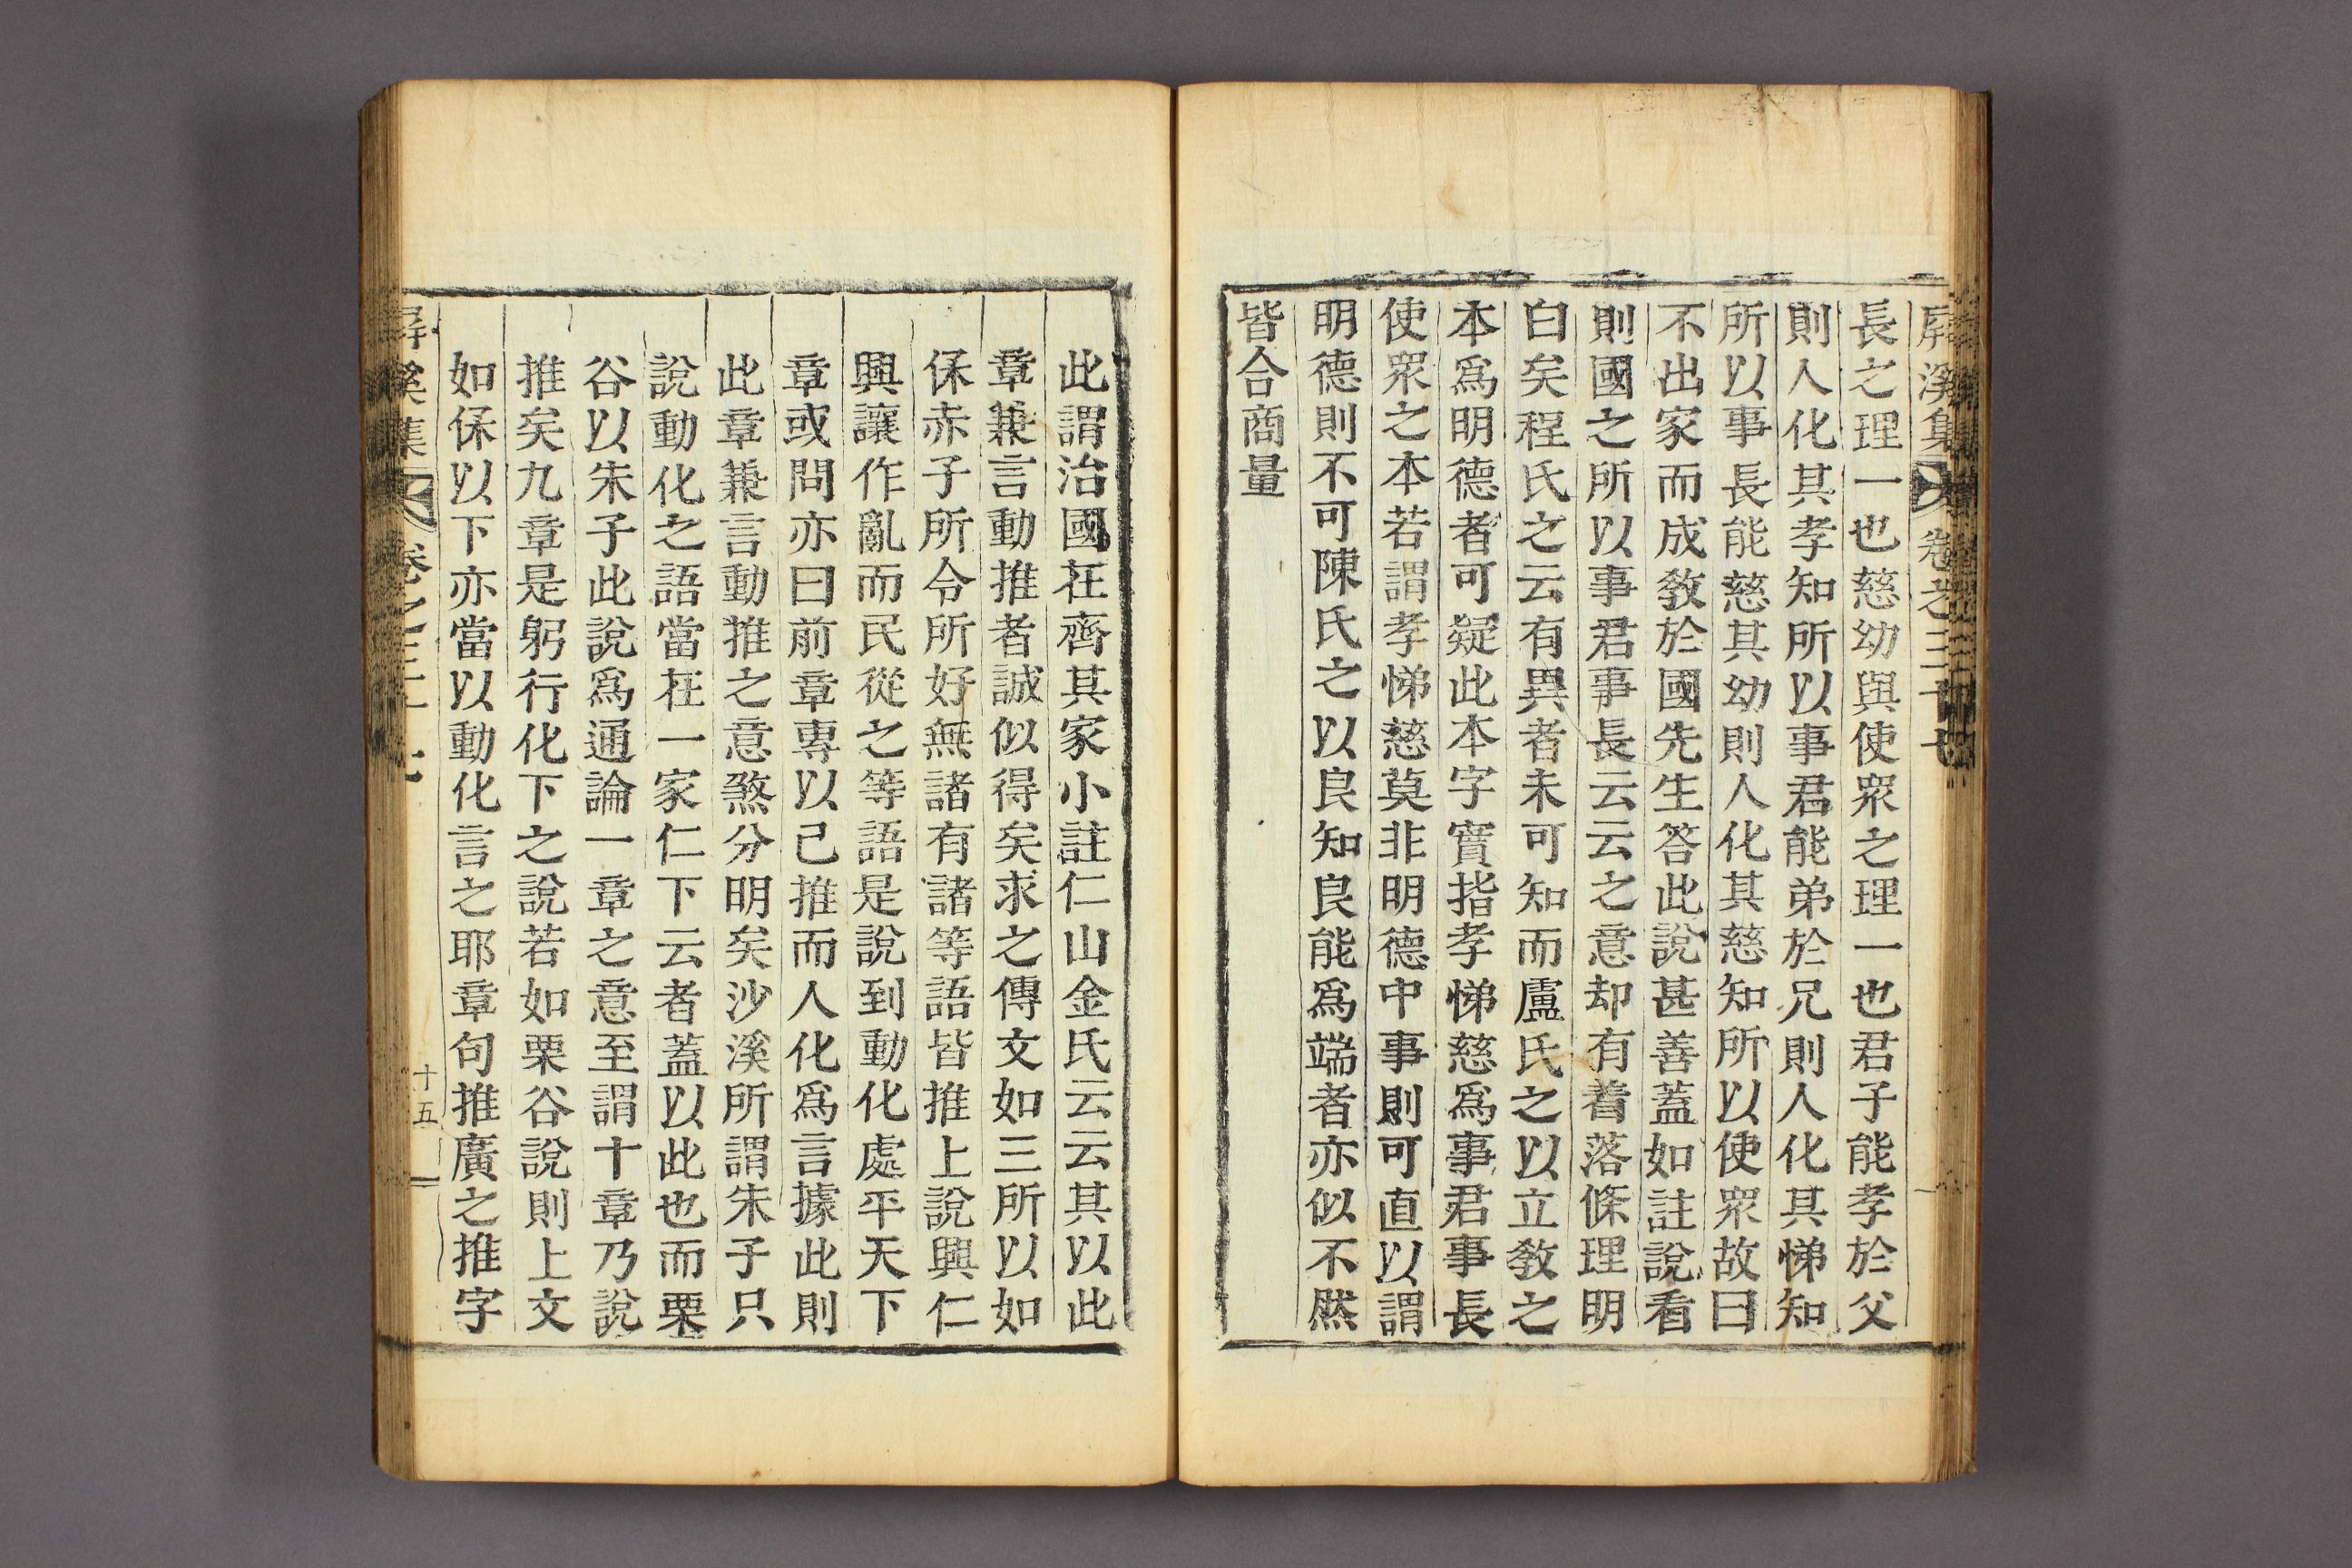 屛溪集 卷之三十七
長之理一也慈幼與使衆之理一也君子能孝於父
則人化其孝知所以事君能弟於兄則人化其悌知
所以事長能慈其幼則人化其慈知所以使衆故曰
不出家而成敎於國先生答此說甚善蓋如註說看
則國之所以事君事長云云之意却有着落條理明
白矣程氏之云有異者未可知而盧氏之以立敎之
本爲明德者可疑此本字實指孝悌慈爲事君事長
使衆之本若謂孝悌慈莫非明德中事則可直以謂
明德則不可陳氏之以良知良能爲端者亦似不然
皆合商量
此謂治國在齊其家小註仁山金氏云云其以此
章兼言動推者誠似得矣求之傳文如三所以如
保赤子所令所好無諸有諸等語皆推上說興仁
興讓作亂而民從之等語是說到動化處平天下
章或問亦曰前章專以己推而人化爲言據此則
此章兼言動推之意煞分明矣沙溪所謂朱子只
說動化之語當在一家仁下云者蓋以此也而栗
谷以朱子此說爲通論一章之意至謂十章乃說
推矣九章是躬行化下之說若如栗谷說則上文
如保以下亦當以動化言之耶章句推廣之推字
屛溪集 卷之三十七 十五